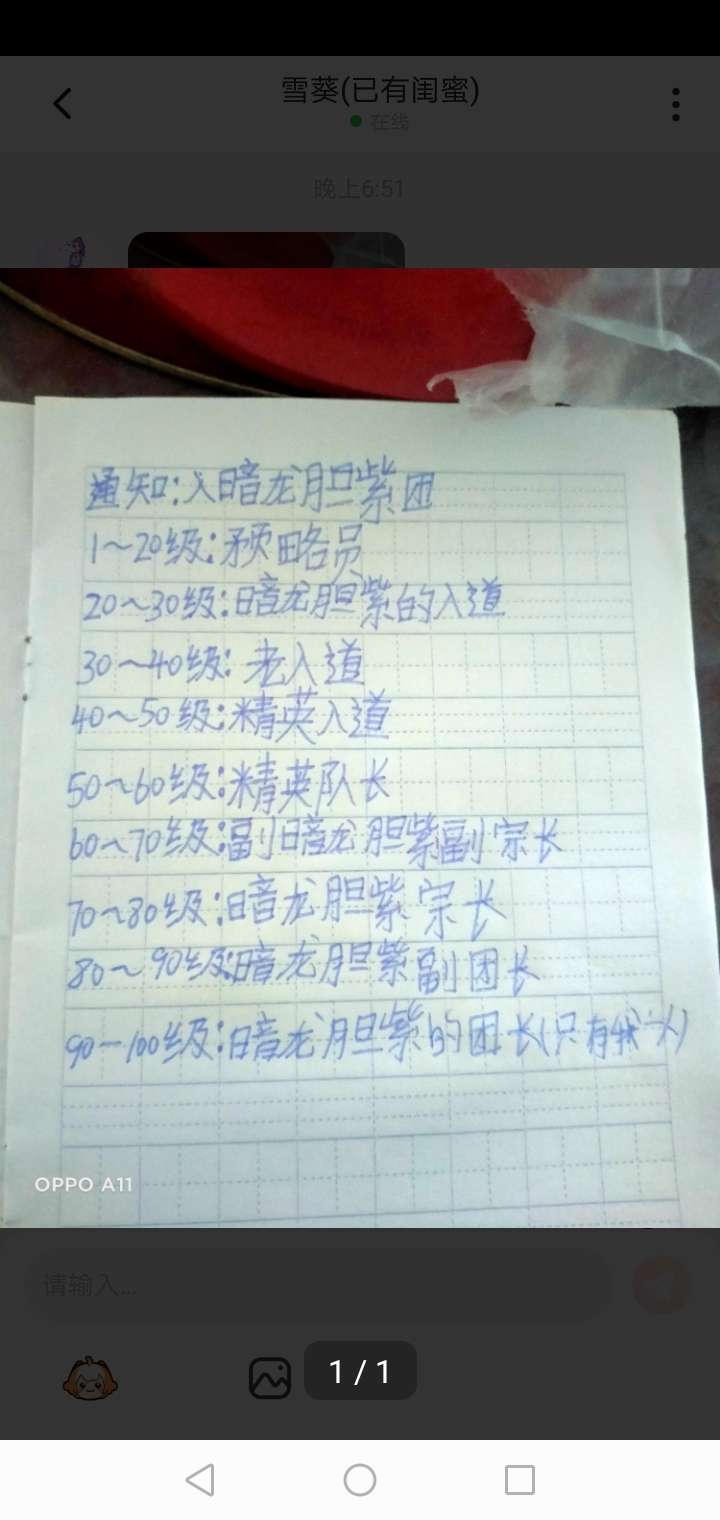 雪葵(已有闺蜜)
在线
晚上6:51
通知:入暗龙胆紫团
1~20级:预略员
20~30级:暗龙胆紫的入道
30~40级:老入道
40~50级:精英入道
50~60级:精英队长
60~70级:副暗龙胆紫副宗长
70~80级:暗龙胆紫宗长
80~90级:暗龙胆紫副团长
90-100级:暗龙胆紫的团长(只有我一人)
OPPO A11
请输入...
1 / 1